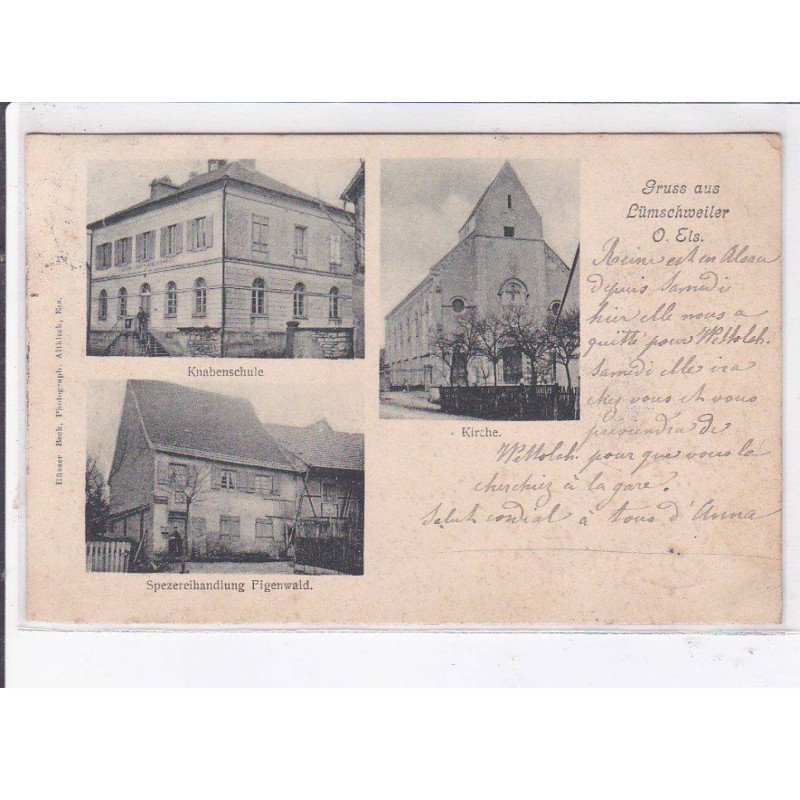 Gruss aus
Lümschweiler
O. Els.
Reine est en Alsace
depuis Samedi
hier elle nous a
quitté pour Wettolsh.
Samedi elle ira
chez vous et vous
préviendra de
Wettolsh. pour que vous la
cherchiez à la gare.
Salut cordial à tous d'Anna
Knabenschule
Kirche.
Spezereihandlung Figenwald.
Büsser Beck, Photograph, Altkirch, Els.